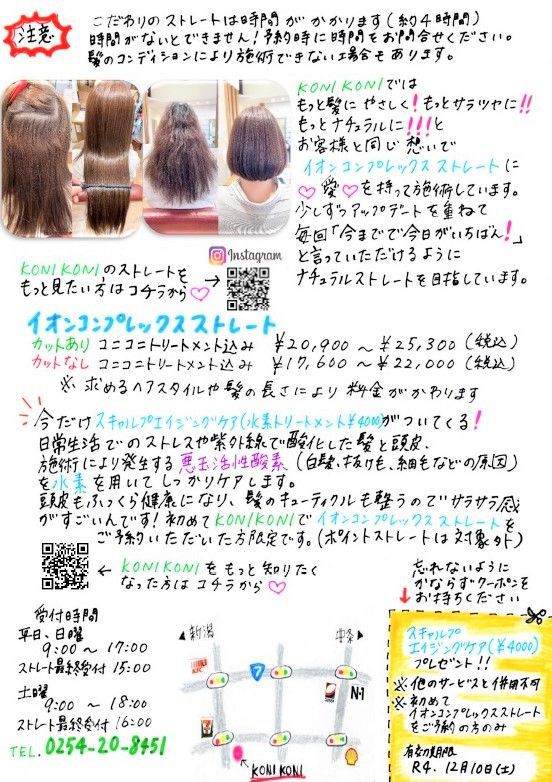 注意
こだわりのストレートは時間がかかります(約4時間)
時間がないとできません!予約時に時間をお問合せください。
髪のコンディションにより施術できない場合もあります。
KONI KONIでは
もっと髪にやさしく!もっとサラツヤに!!
もっとナチュラルに!!!と
お客様と同じ想いで
イオンコンプレックスストレートに
♡愛♡を持って施術しています。
少しずつアップデートを重ねて
毎回「今までで今日がいちばん!」
と言っていただけるように
ナチュラルストレートを目指しています。
Instagram
KONI KONIのストレートを
もっと見たい方はコチラから♡
→
イオンコンプレックスストレート
カットあり コニコニトリートメント込み ¥20,900~¥25,300(税込)
カットなし コニコニトリートメント込み ¥17,600~¥22,000(税込)
※求めるヘアスタイルや髪の長さにより料金がかわります
今だけスキャルプエイジングケア(水素トリートメント¥4000)がついてくる!
日常生活でのストレスや紫外線で酸化した髪と頭皮、
施術により発生する悪玉活性酸素(白髪、抜け毛、細毛などの原因)
を水素を用いてしっかりケアします。
頭皮もふっくら健康になり、髪のキューティクルも整うのでサラサラ感
がすごいんです!初めてKONI KONIでイオンコンプレックスストレートを
ご予約いただいた方限定です。(ポイントストレートは対象外)
← KONI KONIをもっと知りたく
なった方はコチラから♡
忘れないように
かならずクーポンを
↓お持ちください
受付時間
平日、日曜
9:00~17:00
ストレート最終受付15:00
土曜
9:00~18:00
ストレート最終受付16:00
TEL.0254-20-8451
▲新潟
中条▲
KFC
7
N-1
KONI KONI
スキャルプ
エイジングケア(¥4000)
プレゼント!!
※他のサービスと併用不可
※初めて
イオンコンプレックスストレート
をご予約の方のみ
有効期限
R4.12月10日(土)